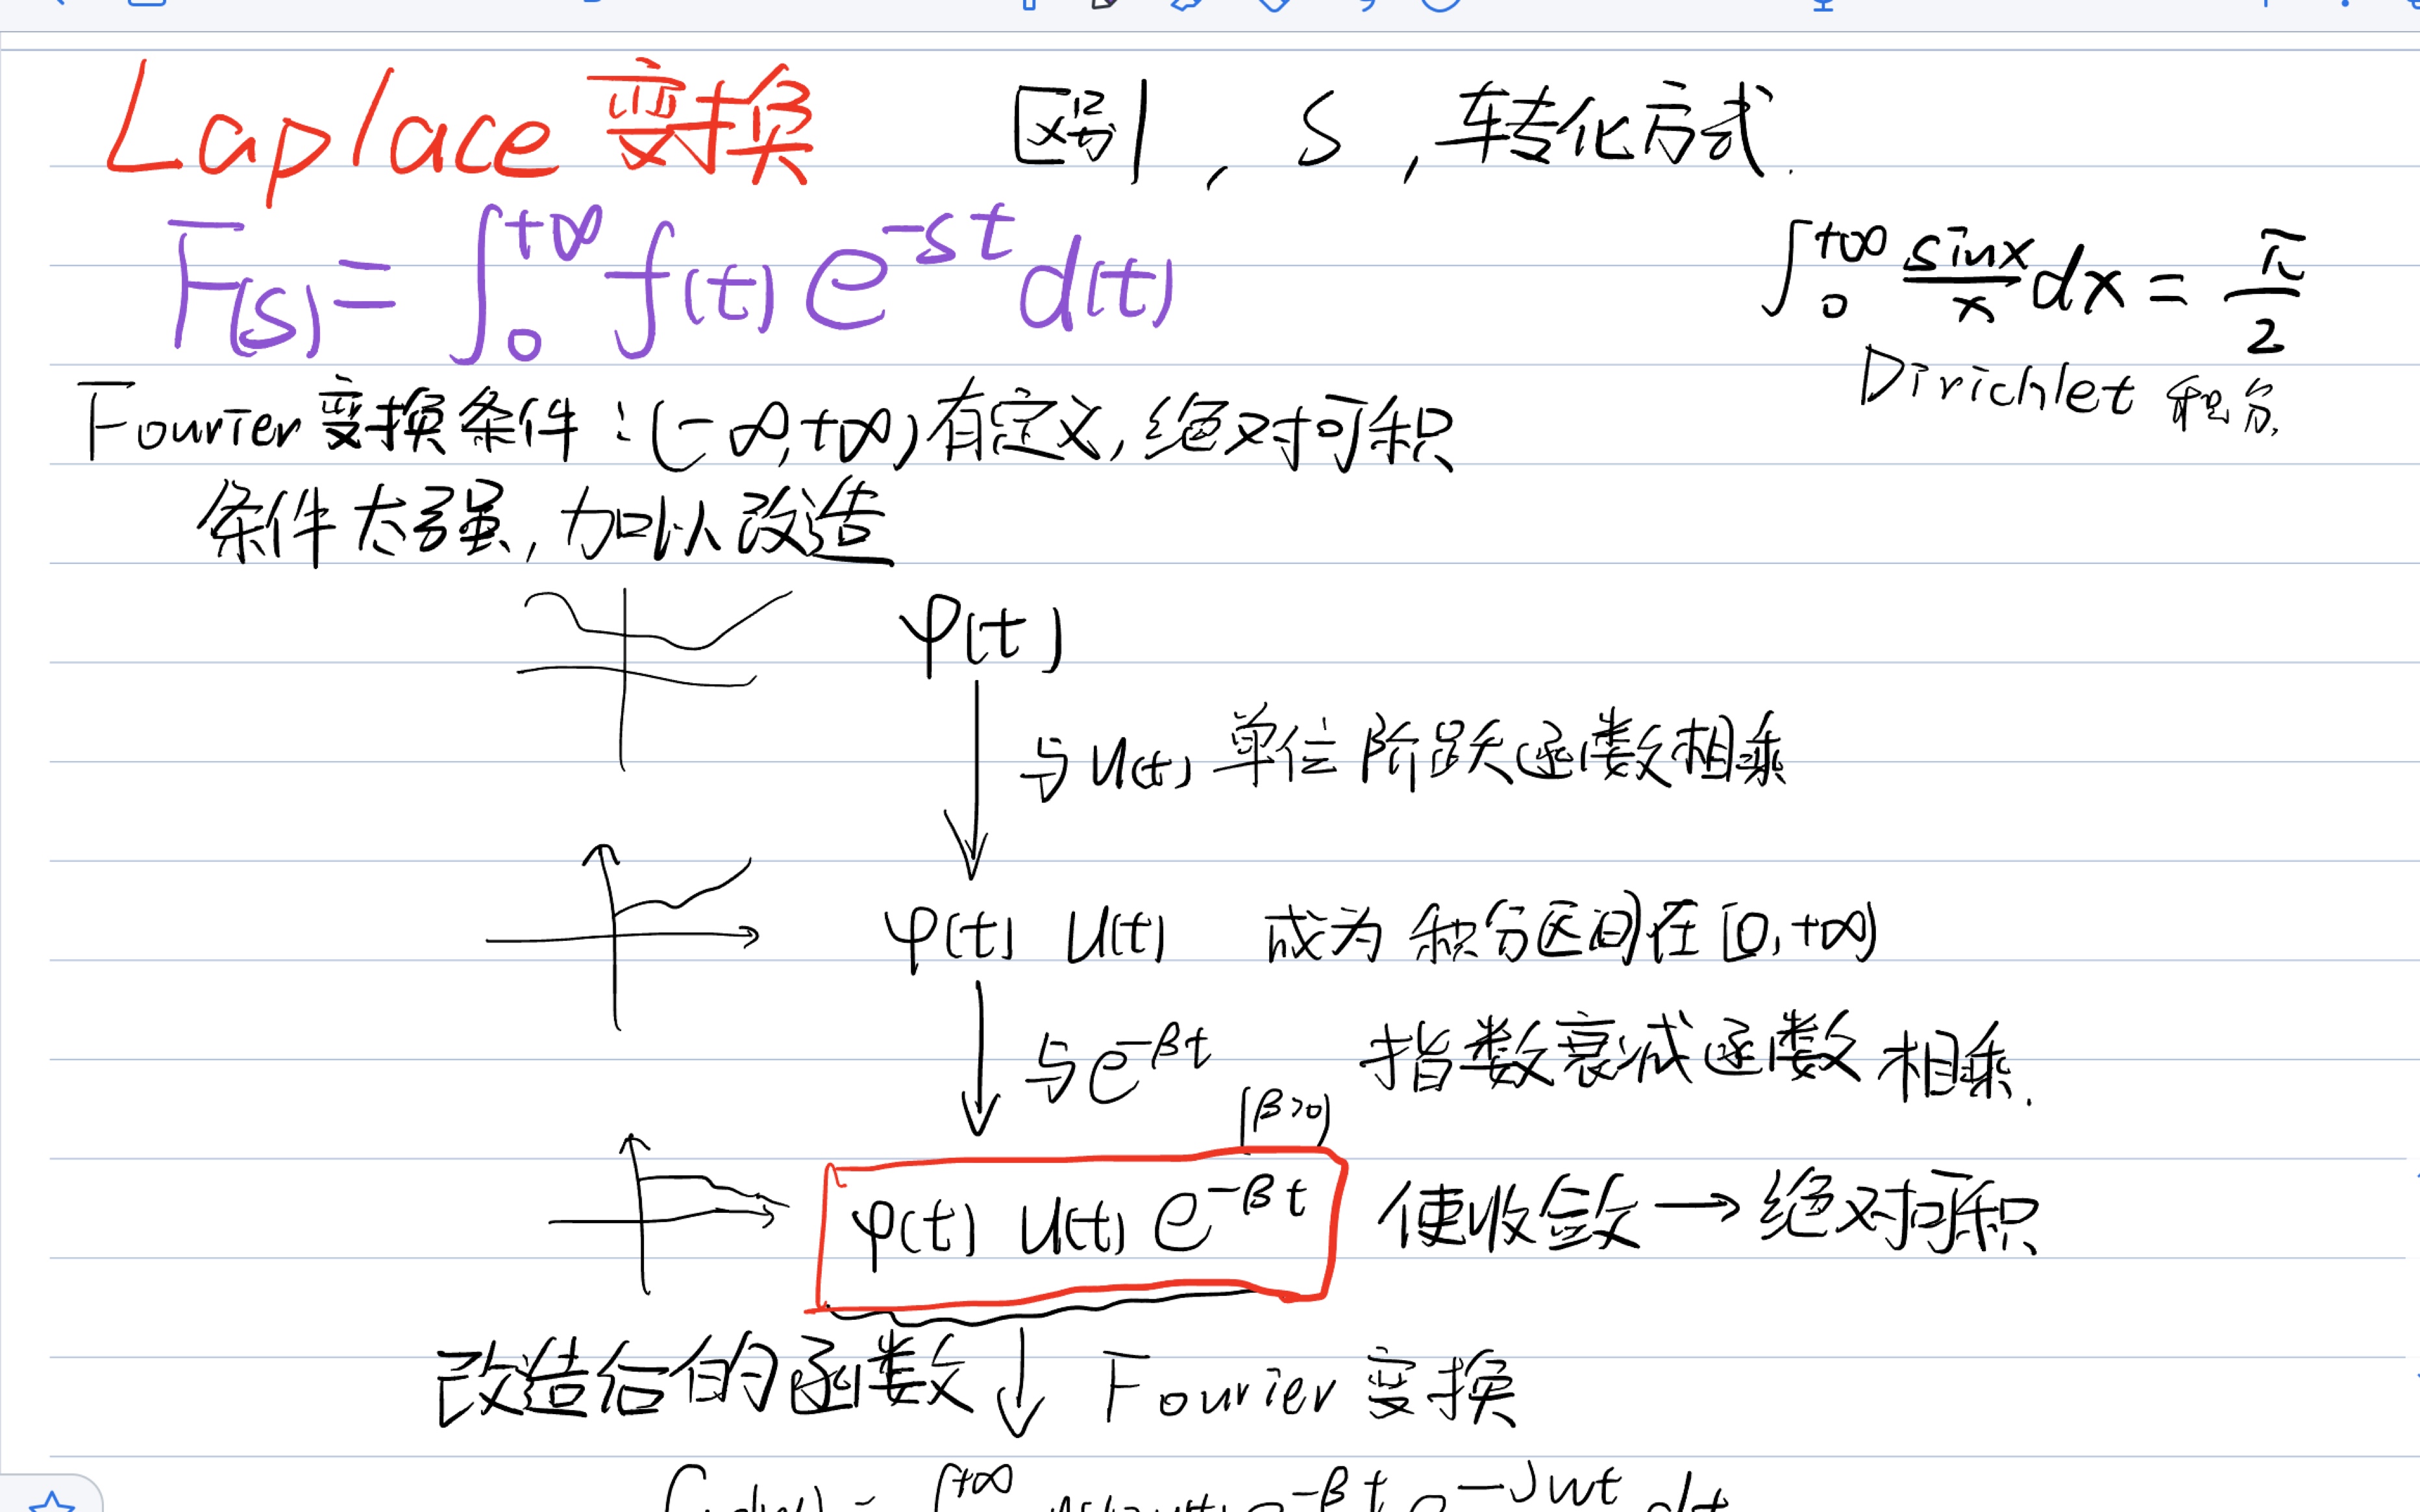 Laplace 变换 区别, S, 转化方式.
F(s) = ∫₀^{+∞} f(t) e^{-st} d(t)
∫₀^{+∞} sinx/x dx = π/2
Dirichlet 积分.
Fourier 变换条件:(-∞,+∞)有定义,绝对可积
条件太强,加以改造
φ(t)
与u(t) 单位阶跃函数相乘
φ(t) u(t) 成为 积分区间在[0,+∞)
与e^{-βt} 指数衰减函数 相乘.
(β>0)
φ(t) u(t) e^{-βt} 使收敛→绝对可积
改造后的函数↓ Fourier 变换